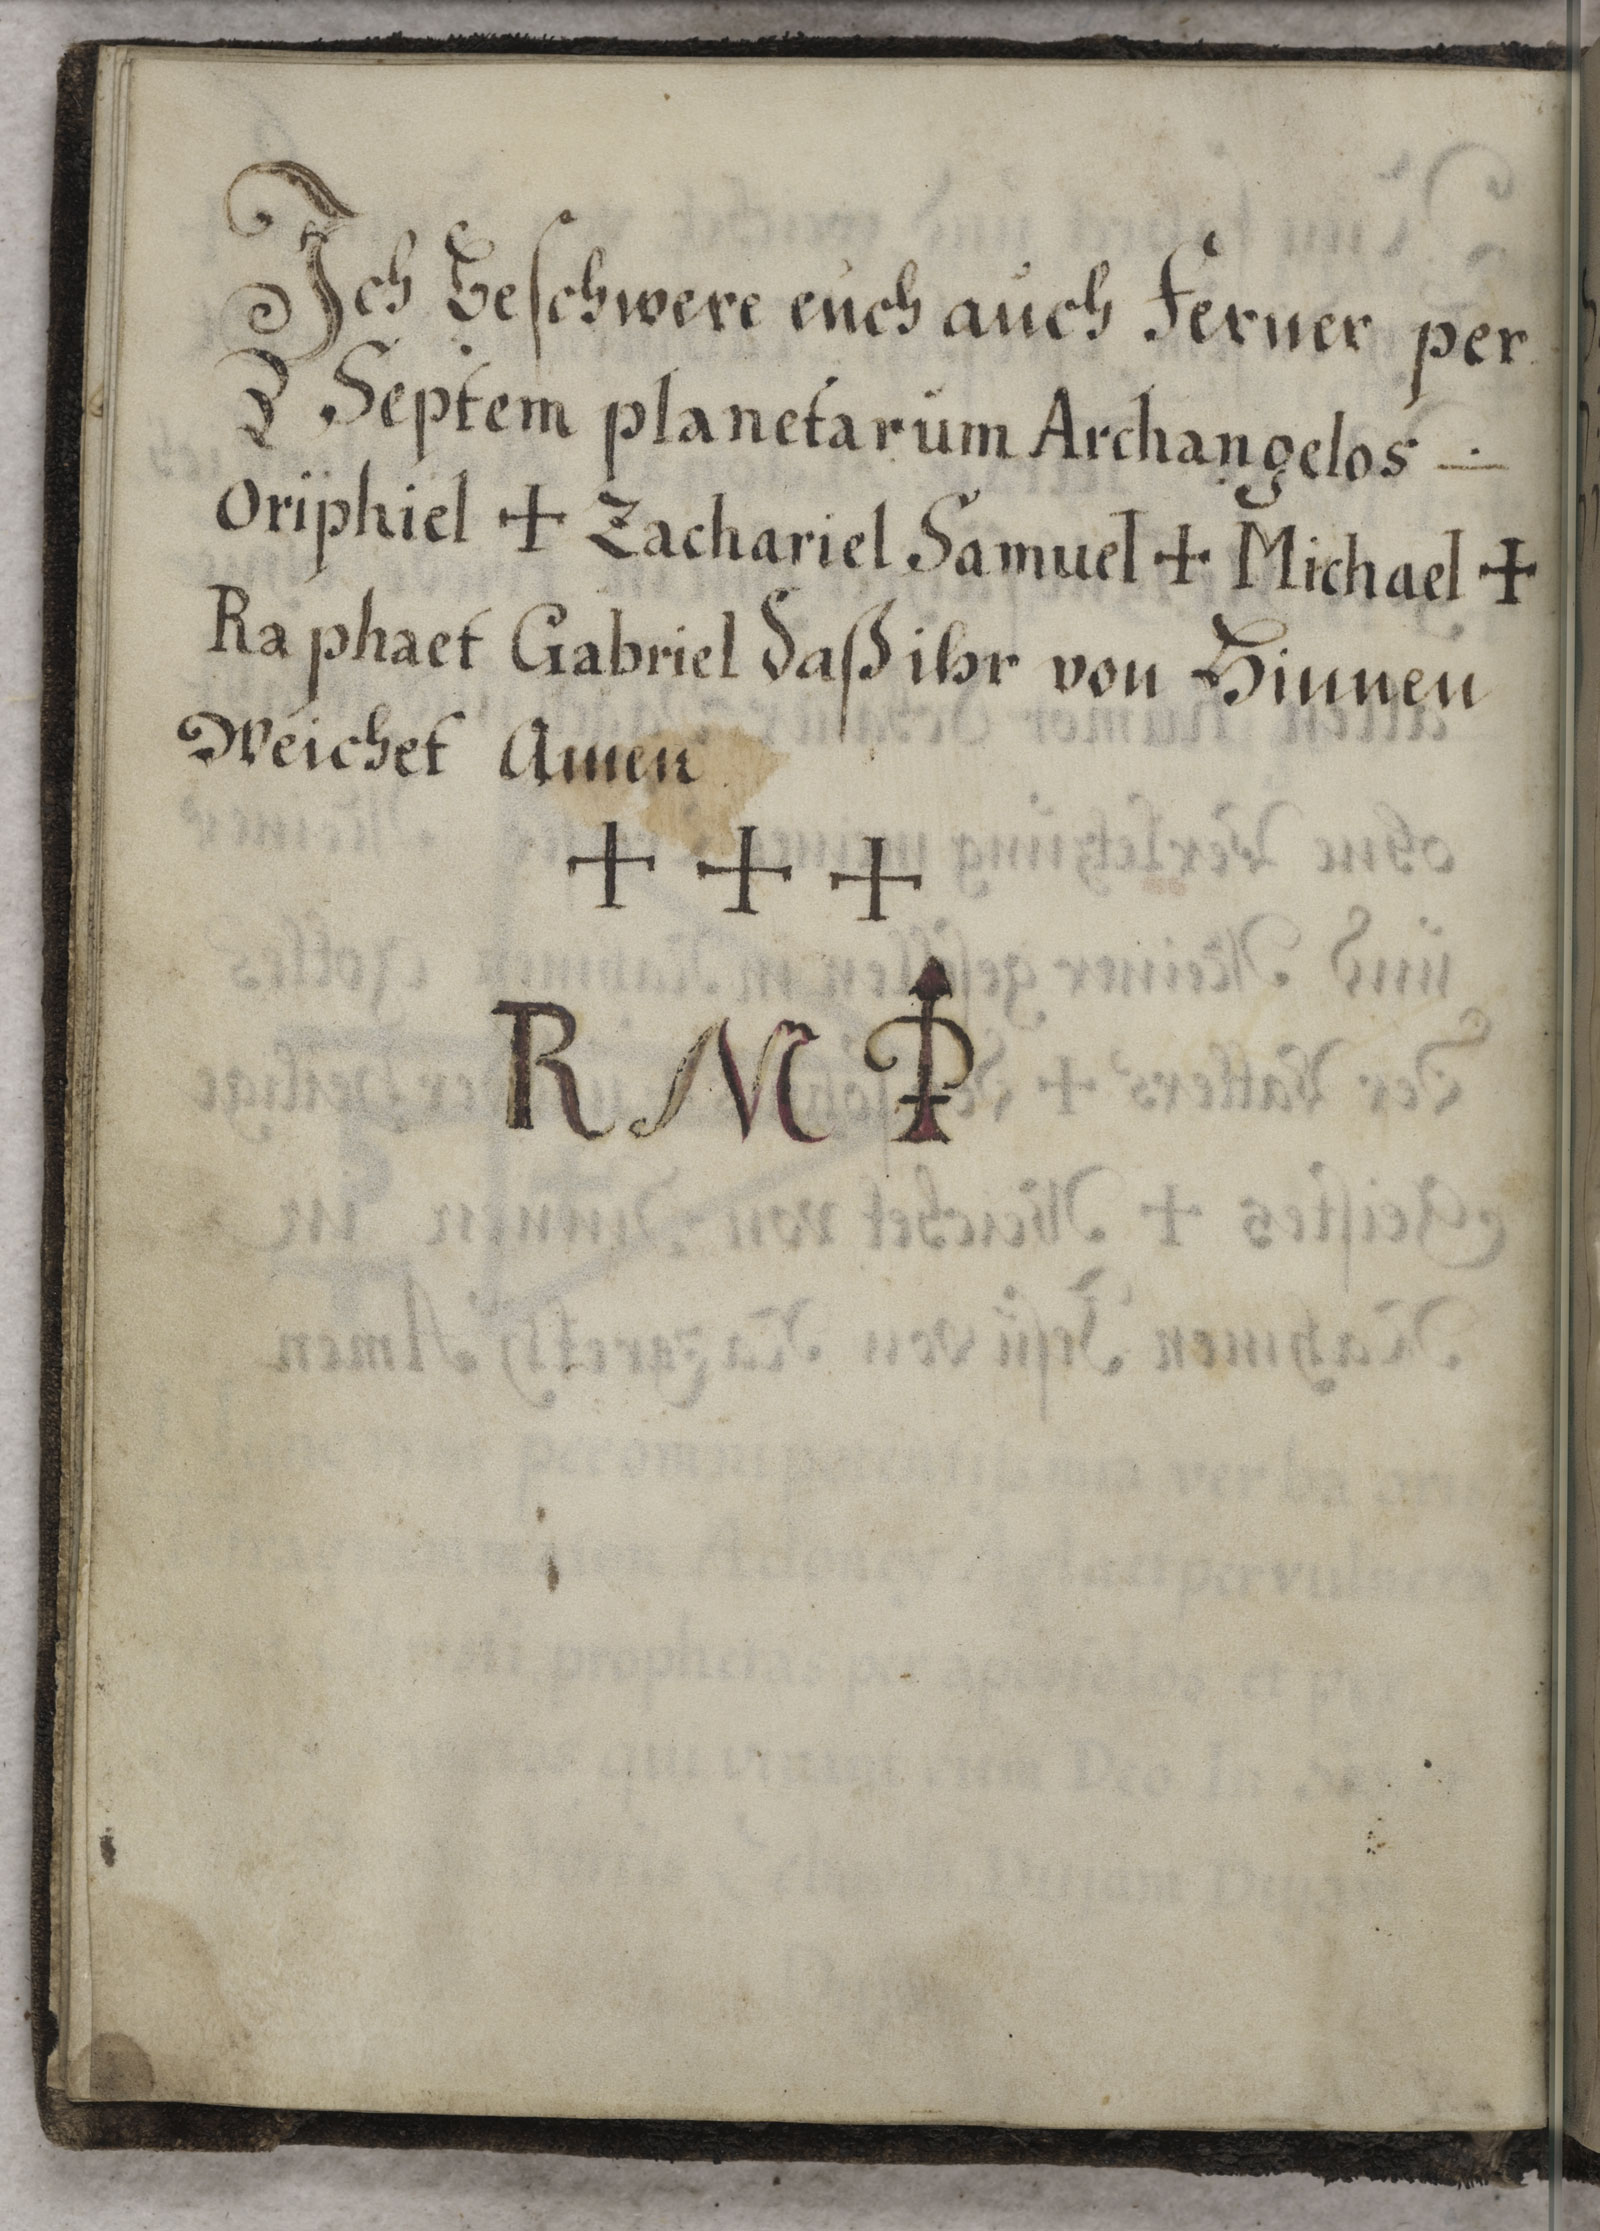 Ich Beschwere euch auch Ferner per
Septem planetarum Archangelos
Oriphiel + Zachariel Samuel + Michael +
Raphaet Gabriel daß ihr von Hinnen
Weichet Amen
+ + +
R M